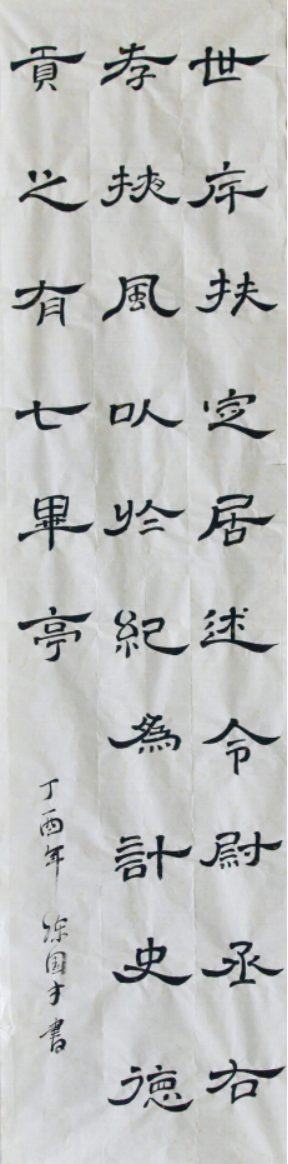 世序扶定居述令尉丞右
孝挾風以於紀為計史德
貢之有七畢亭
丁酉年 徐国才書